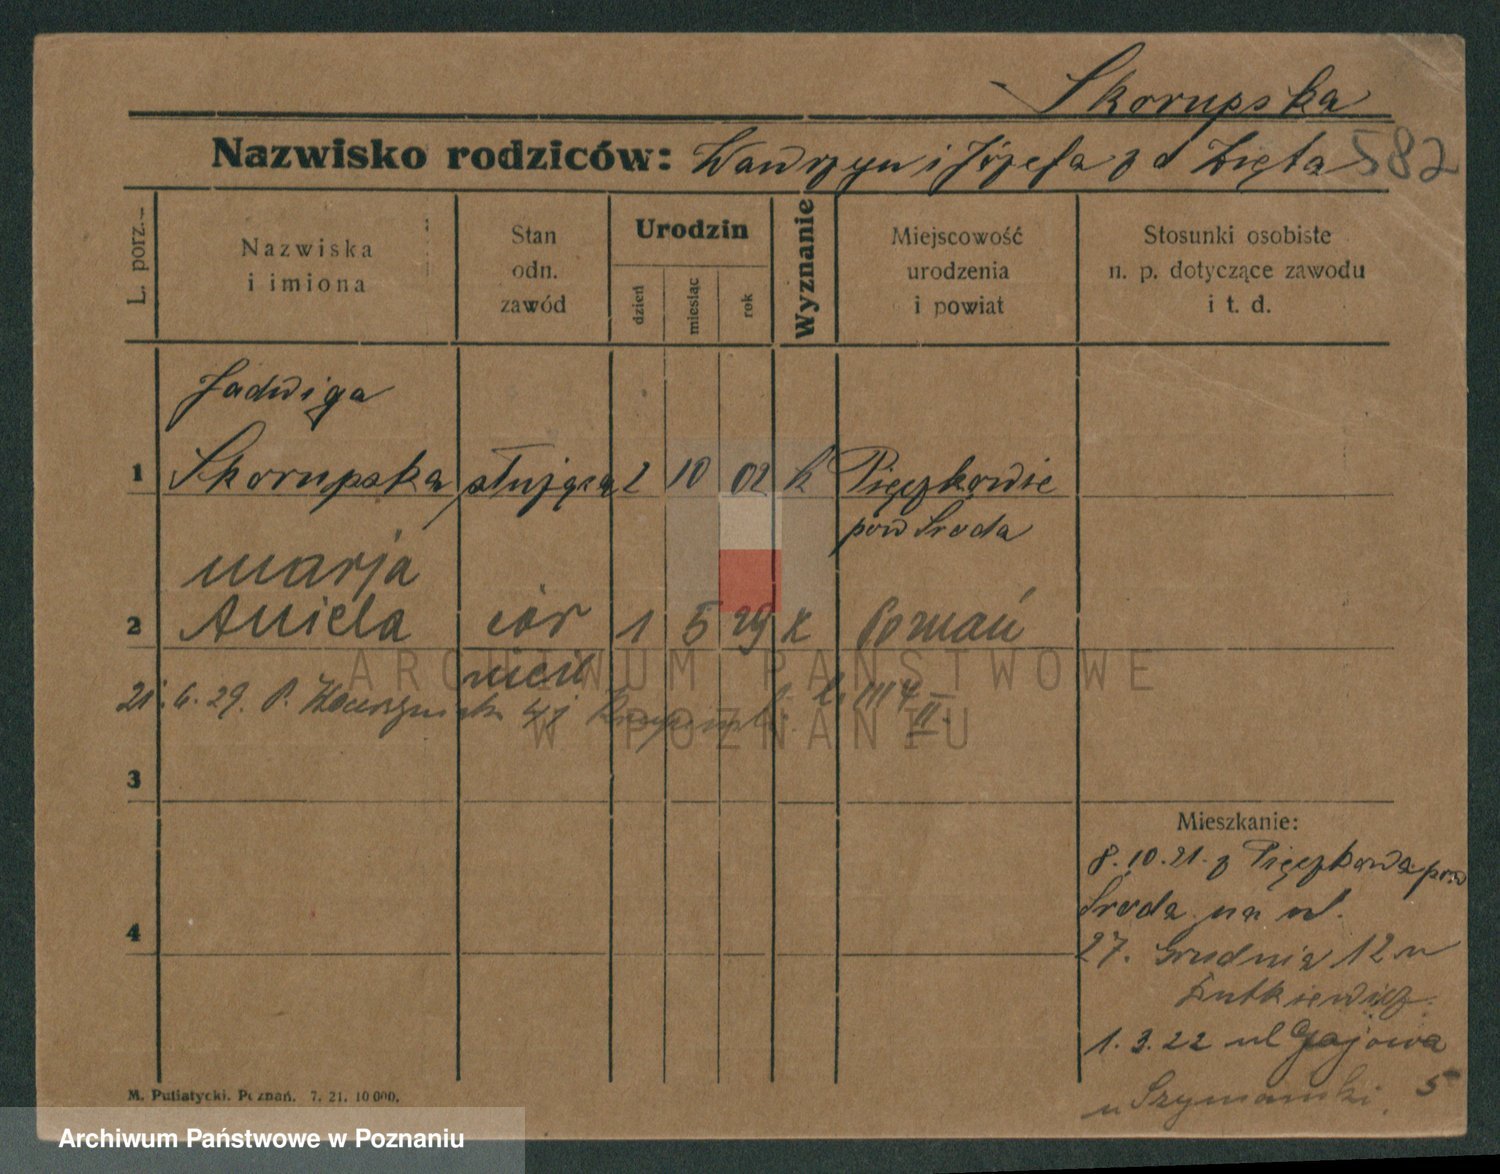 Skorupska
Nazwisko rodziców: Wawrzyn i Józefa z d Zięta 582
L. porz.
Nazwiska
i imiona
Stan
odn.
zawód
Urodzin
dzień
miesiąc
rok
Wyznanie
Miejscowość
urodzenia
i powiat
Stosunki osobiste
n. p. dotyczące zawodu
i t. d.
Jadwiga
1 Skorupska służąca 2 10 02 k Pięczkowie
pow Środa
Marja
2 Aniela cór 1 5 29 k Poznań
nieśl
21. 6. 29. P.
3
Mieszkanie:
8.10.21. z Pięczkowa pow
Środa na ul.
4
27. Grudnia 12 u
Lutkiewicz.
1.3.22 ul Gajowa
u Szymański 5
M. Putiatycki. Poznań. 7. 21. 10 000.
ARCHIWUM PAŃSTWOWE
W POZNANIU
Archiwum Państwowe w Poznaniu